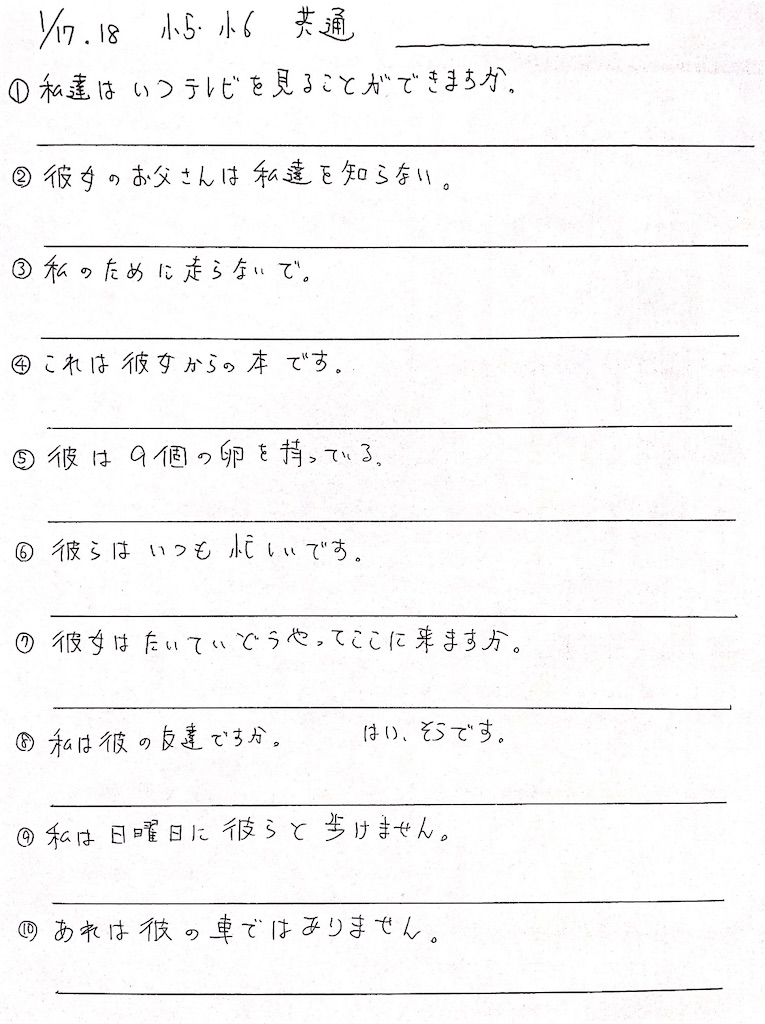 1/17.18 小5.小6 共通
① 私達はいつテレビを見ることができますか。
② 彼女のお父さんは私達を知らない。
③ 私のために走らないで。
④ これは彼女からの本です。
⑤ 彼は9個の卵を持っている。
⑥ 彼らはいつも忙しいです。
⑦ 彼女はたいていどうやってここに来ますか。
⑧ 私は彼の友達ですか。 はい、そうです。
⑨ 私は日曜日に彼らと歩けません。
⑩ あれは彼の車ではありません。